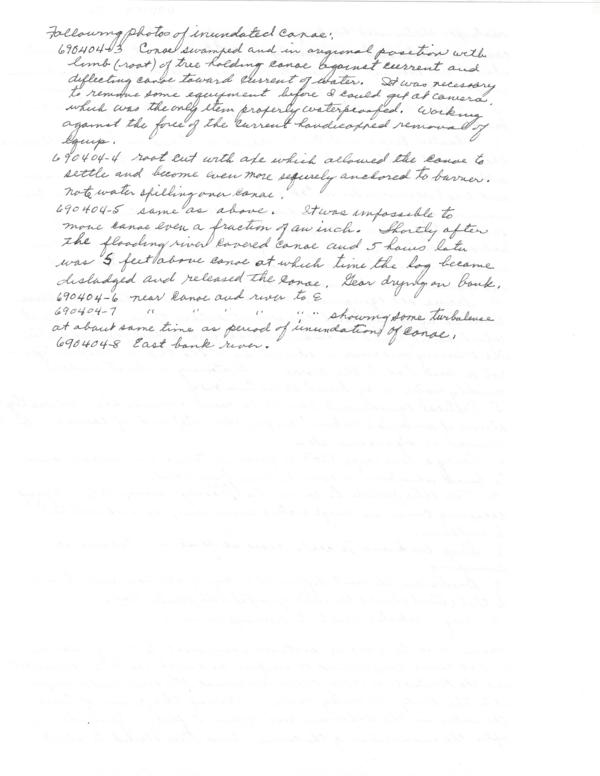 Following photos of inundated canoe:
690404-3 Canoe swamped and in origional position with
limb (root) of tree holding canoe against current and
deflecting canoe toward current of water. It was necessary
to remove some equipment before I could get at camera,
which was the only item properly waterproofed. Working
against the force of the current handicapped removal of
equip.
690404-4 root cut with axe which allowed the canoe to
settle and become even more securely anchored to barrier.
note water spilling over canoe.
690404-5 same as above. It was impossible to
move canoe even a fraction of an inch. Shortly after
the flooding river covered canoe and 5 hours later
was 5 feet above canoe at which time the log became
dislodged and released the canoe. Gear drying on bank.
690404-6 near canoe and river to E
690404-7 " " " " " " showing some turbulense
at about same time as period of inundation of canoe.
690404-8 East bank river.